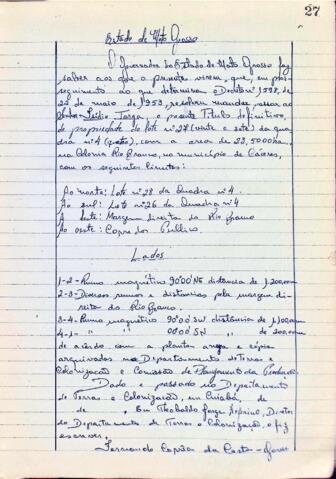 27
Estado de Mato Grosso
O Governador do Estado de Mato Grosso faz
saber aos que o presente virem, que, em pros-
seguimento ao que determina o Decreto nº 1.598, de
22 de maio de 1953, resolveu mandar passar ao
Targa, o presente Titulo definitivo,
de propriedade do lote nº 27 (vinte e sete) da qua-
dra nº 4 (quatro), com a area de 22,5000 ha,
na Colonia Rio Branco, no município de Cáceres,
com os seguintes limites:
Ao norte: Lote nº 28 da Quadra nº 4.
Ao sul: Lote nº 26 da Quadra nº 4
A leste: Margem direita do Rio Branco
Ao oeste: Corredor Publico.
Lados
1-2- Rumo magnético 90º00' NE distancia de
2-3- Diversos rumos e distancias pela margem di-
reita do Rio Branco.
3-4- Rumo magnético 90º00' SW distância de
4-1- " " 00º00' SN " de
de acôrdo com a planta anexa e cópia
arquivadas no Departamento de Terras e
Colonização e Comissão de Planejamento da Produção.
Dado e passado no Departamento
de Terras e Colonização, em Cuiabá, de
de , Eu Theobaldo Jorge , Diretor
do Departamento de Terras e Colonização, o fiz
escrever.
Fernando Corrêa da Costa